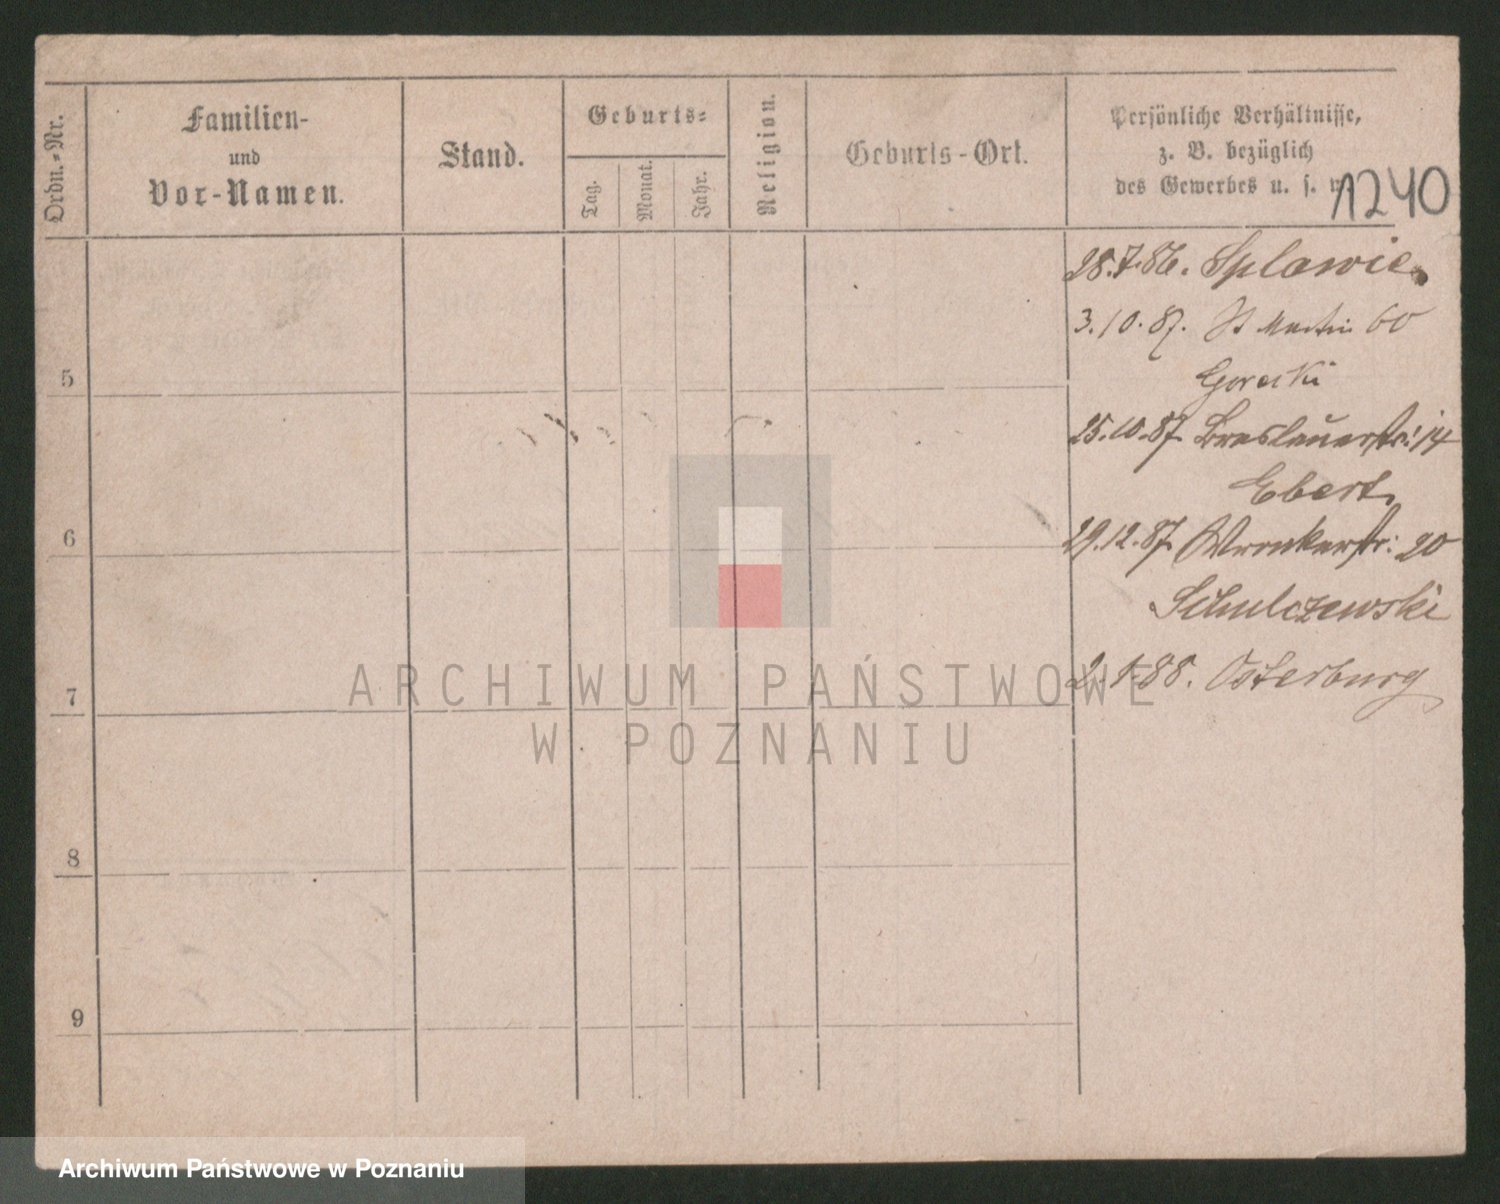 Ordn.=Nr.
Familien-
und
Vor-Namen.
Stand.
Geburts=
Tag.
Monat.
Jahr.
Religion.
Geburts-Ort.
Persönliche Verhältnisse,
z. B. bezüglich
des Gewerbes u. s. w.
1240
28.7.86. Splawie
3.10.87. St Martin 60
Gorecki
5
25.10.87 Breslauerstr: 14
Ebert.
6
29.12.87 Wronkerstr: 20
Schulczewski
2.1.88. Osterburg
7
8
9
ARCHIWUM PAŃSTWOWE
W POZNANIU
Archiwum Państwowe w Poznaniu